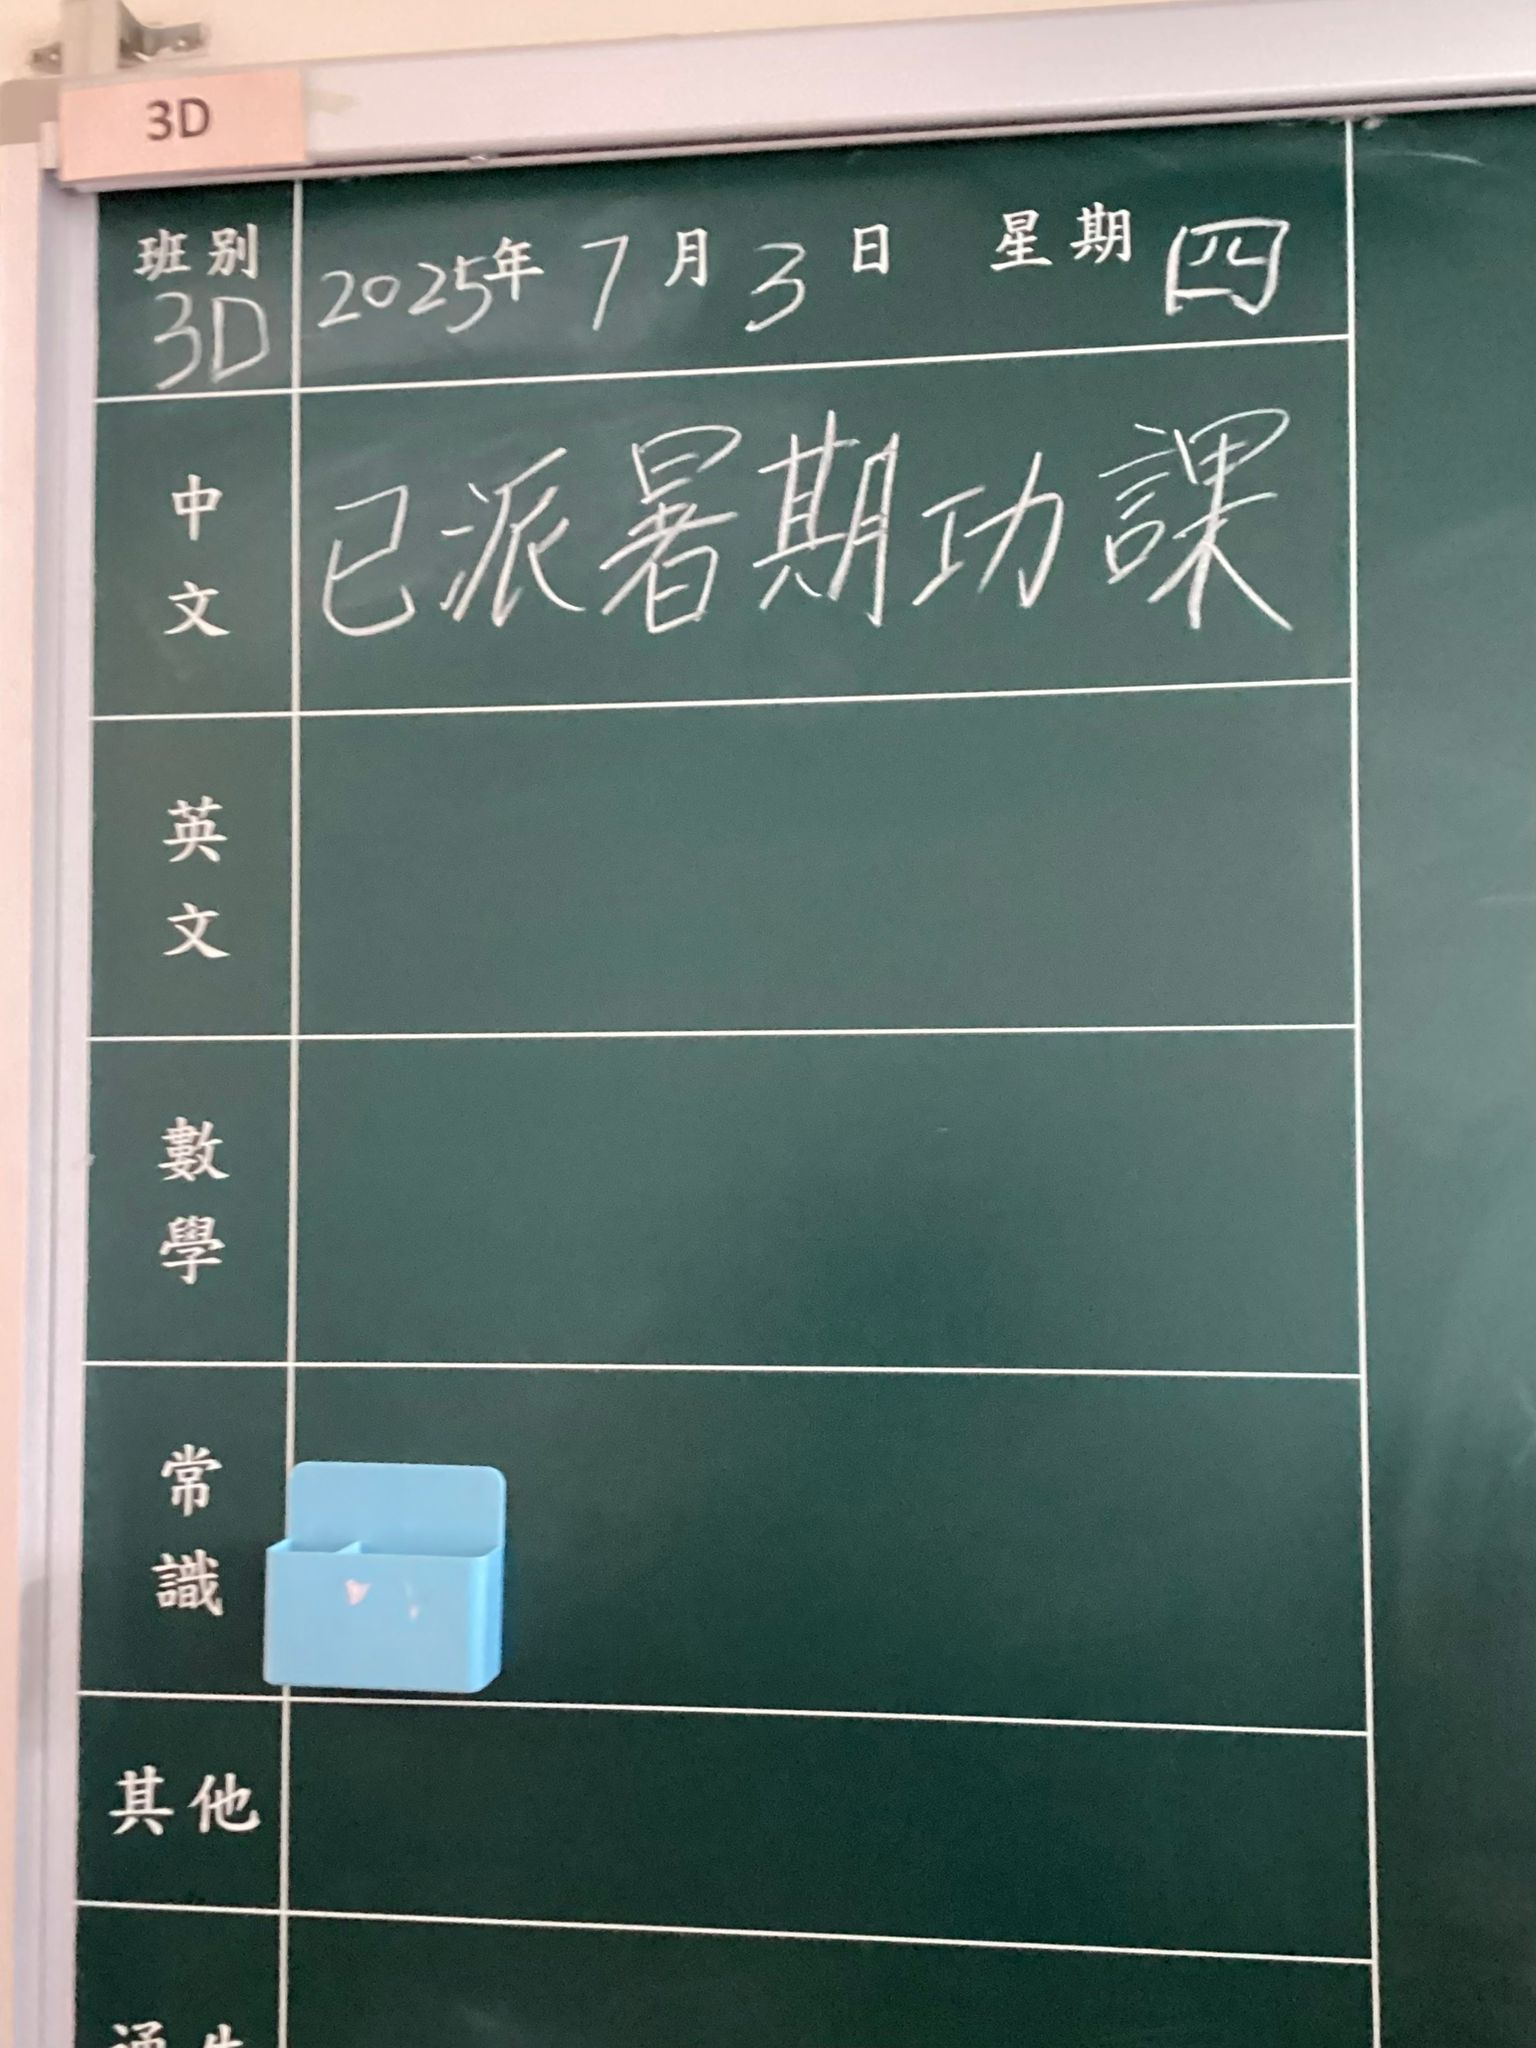 3D
班別 2025年 7月 3日 星期 四
3D
中文 已派暑期功課
英文
數學
常識
其他